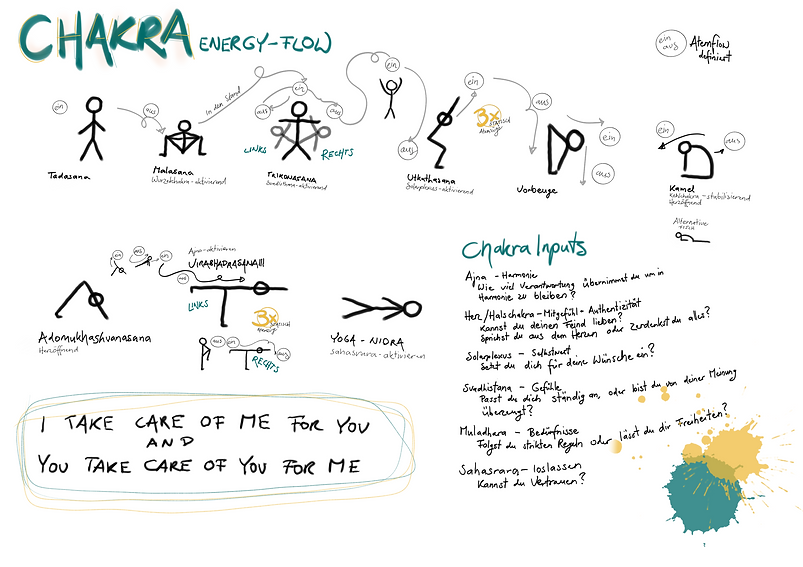 CHAKRA ENERGY-FLOW
ein
aus
Atemflow
definiert
ein
aus
in den Stand
aus
ein
aus
ein
aus
ein
aus
3x
statisch
ein
aus
ein
aus
LINKS
RECHTS
Tadasana
Malasana
Wurzelchakra-aktivierend
TRIKONASANA
Utkathasana
Solarplexus-aktivierend
Vorbeuge
Kamel
Halschakra-stabilisierend
Herzöffnend
Alternative
Fisch
ein
aus
ein
aus
Ajna-aktivieren
VIRABHADRASANA III
LINKS
3x
statisch
aus
ein
aus
RECHTS
Adomukhashvanasana
Herzöffnend
YOGA - NIDRA
sahasrara-aktivieren
I TAKE CARE OF ME FOR YOU
AND
YOU TAKE CARE OF YOU FOR ME
Chakra Inputs
Ajna - Harmonie
Wie viel Verantwortung übernimmst du um in
Harmonie zu bleiben?
Herz/Halschakra-Mitgefühl+Authentizität
Kannst du deinen Feind lieben?
Sprichst du aus dem Herzen oder Zerdenkst du alles?
Solarplexus - Selbstwert
Setzt du dich für deine Wünsche ein?
Svadhistana - Gefühle
Passt du dich ständig an, oder bist du von deiner Meinung
überzeugt?
Muladhara - Bedürfnisse
Folgst du strikten Regeln oder lässt du dir Freiheiten?
Sahasrara- loslassen
Kannst du Vertrauen?